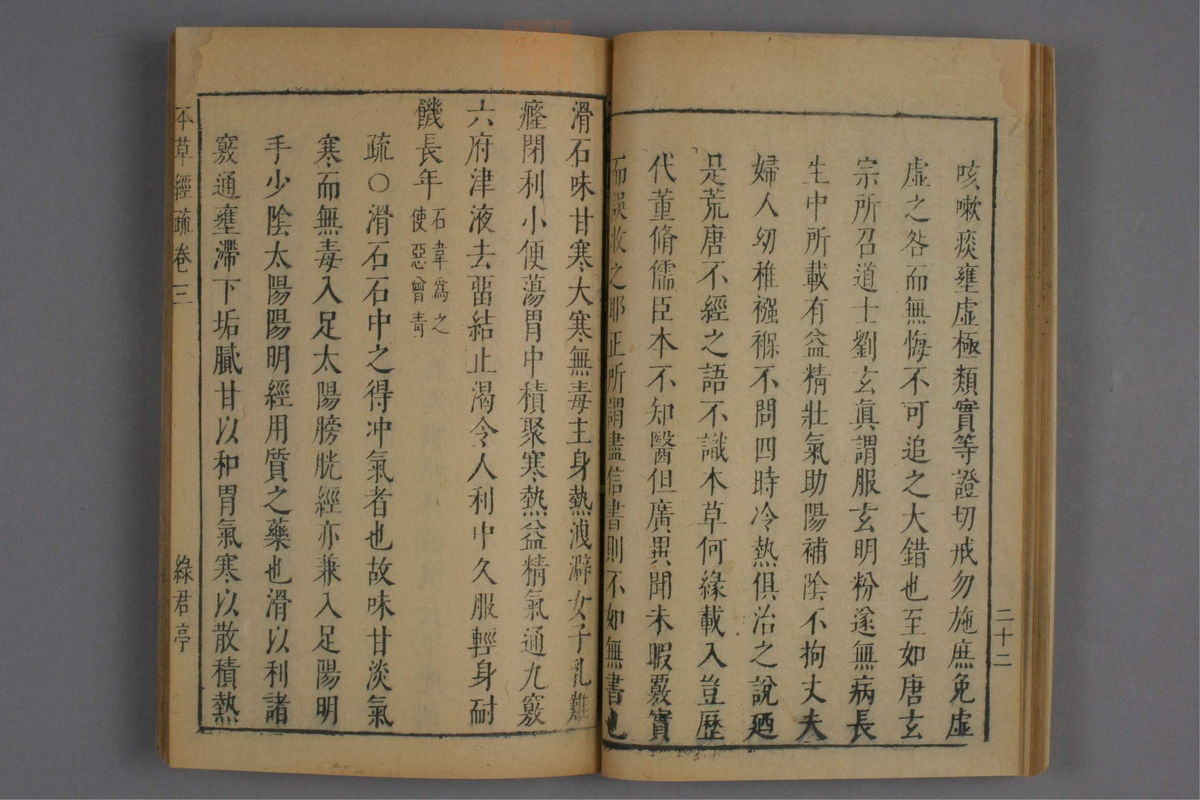 咳嗽痰壅虛極類實等證切戒勿施庶免虛
虛之咎而無悔不可追之大錯也至如唐玄
宗所召道士劉玄眞謂服玄明粉遂無病長
生中所載有益精壯氣助陽補陰不拘丈夫
婦人幼稚襁褓不問四時冷熱俱治之說廼
是荒唐不經之語不識本草何緣載入豈歷
代董脩儒臣本不知醫但廣異聞未暇覈實
而誤收之耶正所謂盡信書則不如無書也
二十二
滑石味甘寒大寒無毒主身熱洩澼女子乳難
癃閉利小便蕩胃中積聚寒熱益精氣通九竅
六府津液去畱結止渴令人利中久服輕身耐
饑長年石韋爲之使惡曾青
疏○滑石石中之得冲氣者也故味甘淡氣
寒而無毒入足太陽膀胱經亦兼入足陽明
手少陰太陽陽明經用質之藥也滑以利諸
竅通壅滯下垢膩甘以和胃氣寒以散積熱
本草經疏卷三
綠君亭